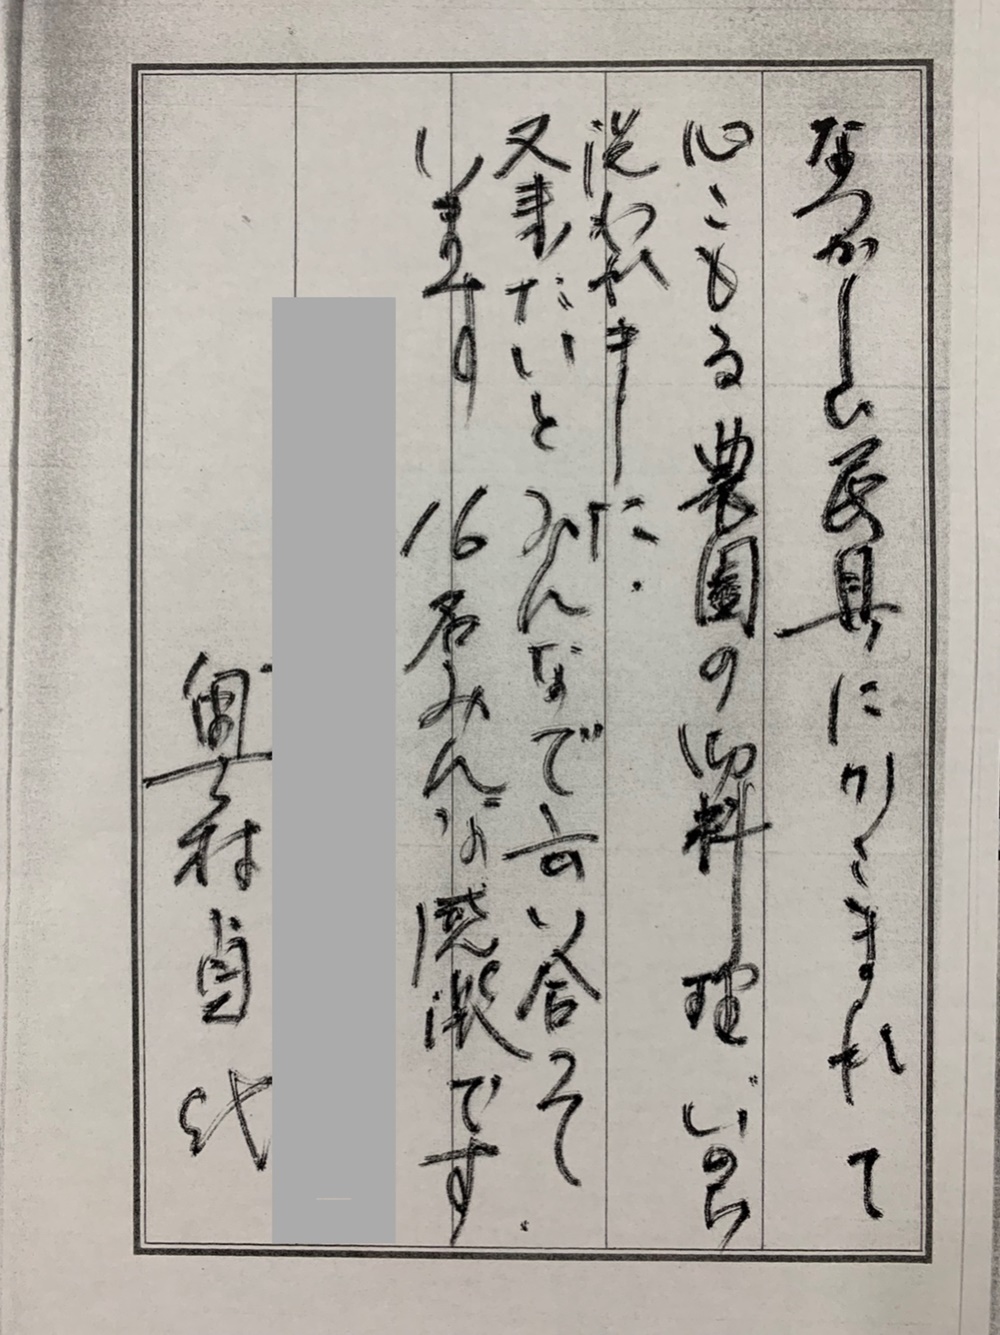 なつかしい民具にかこまれて
心こもる農園の御料理 いのち
洗われました.
又来たいと みんなで言い合って.
います 16名みんな感激です
奥村貞代